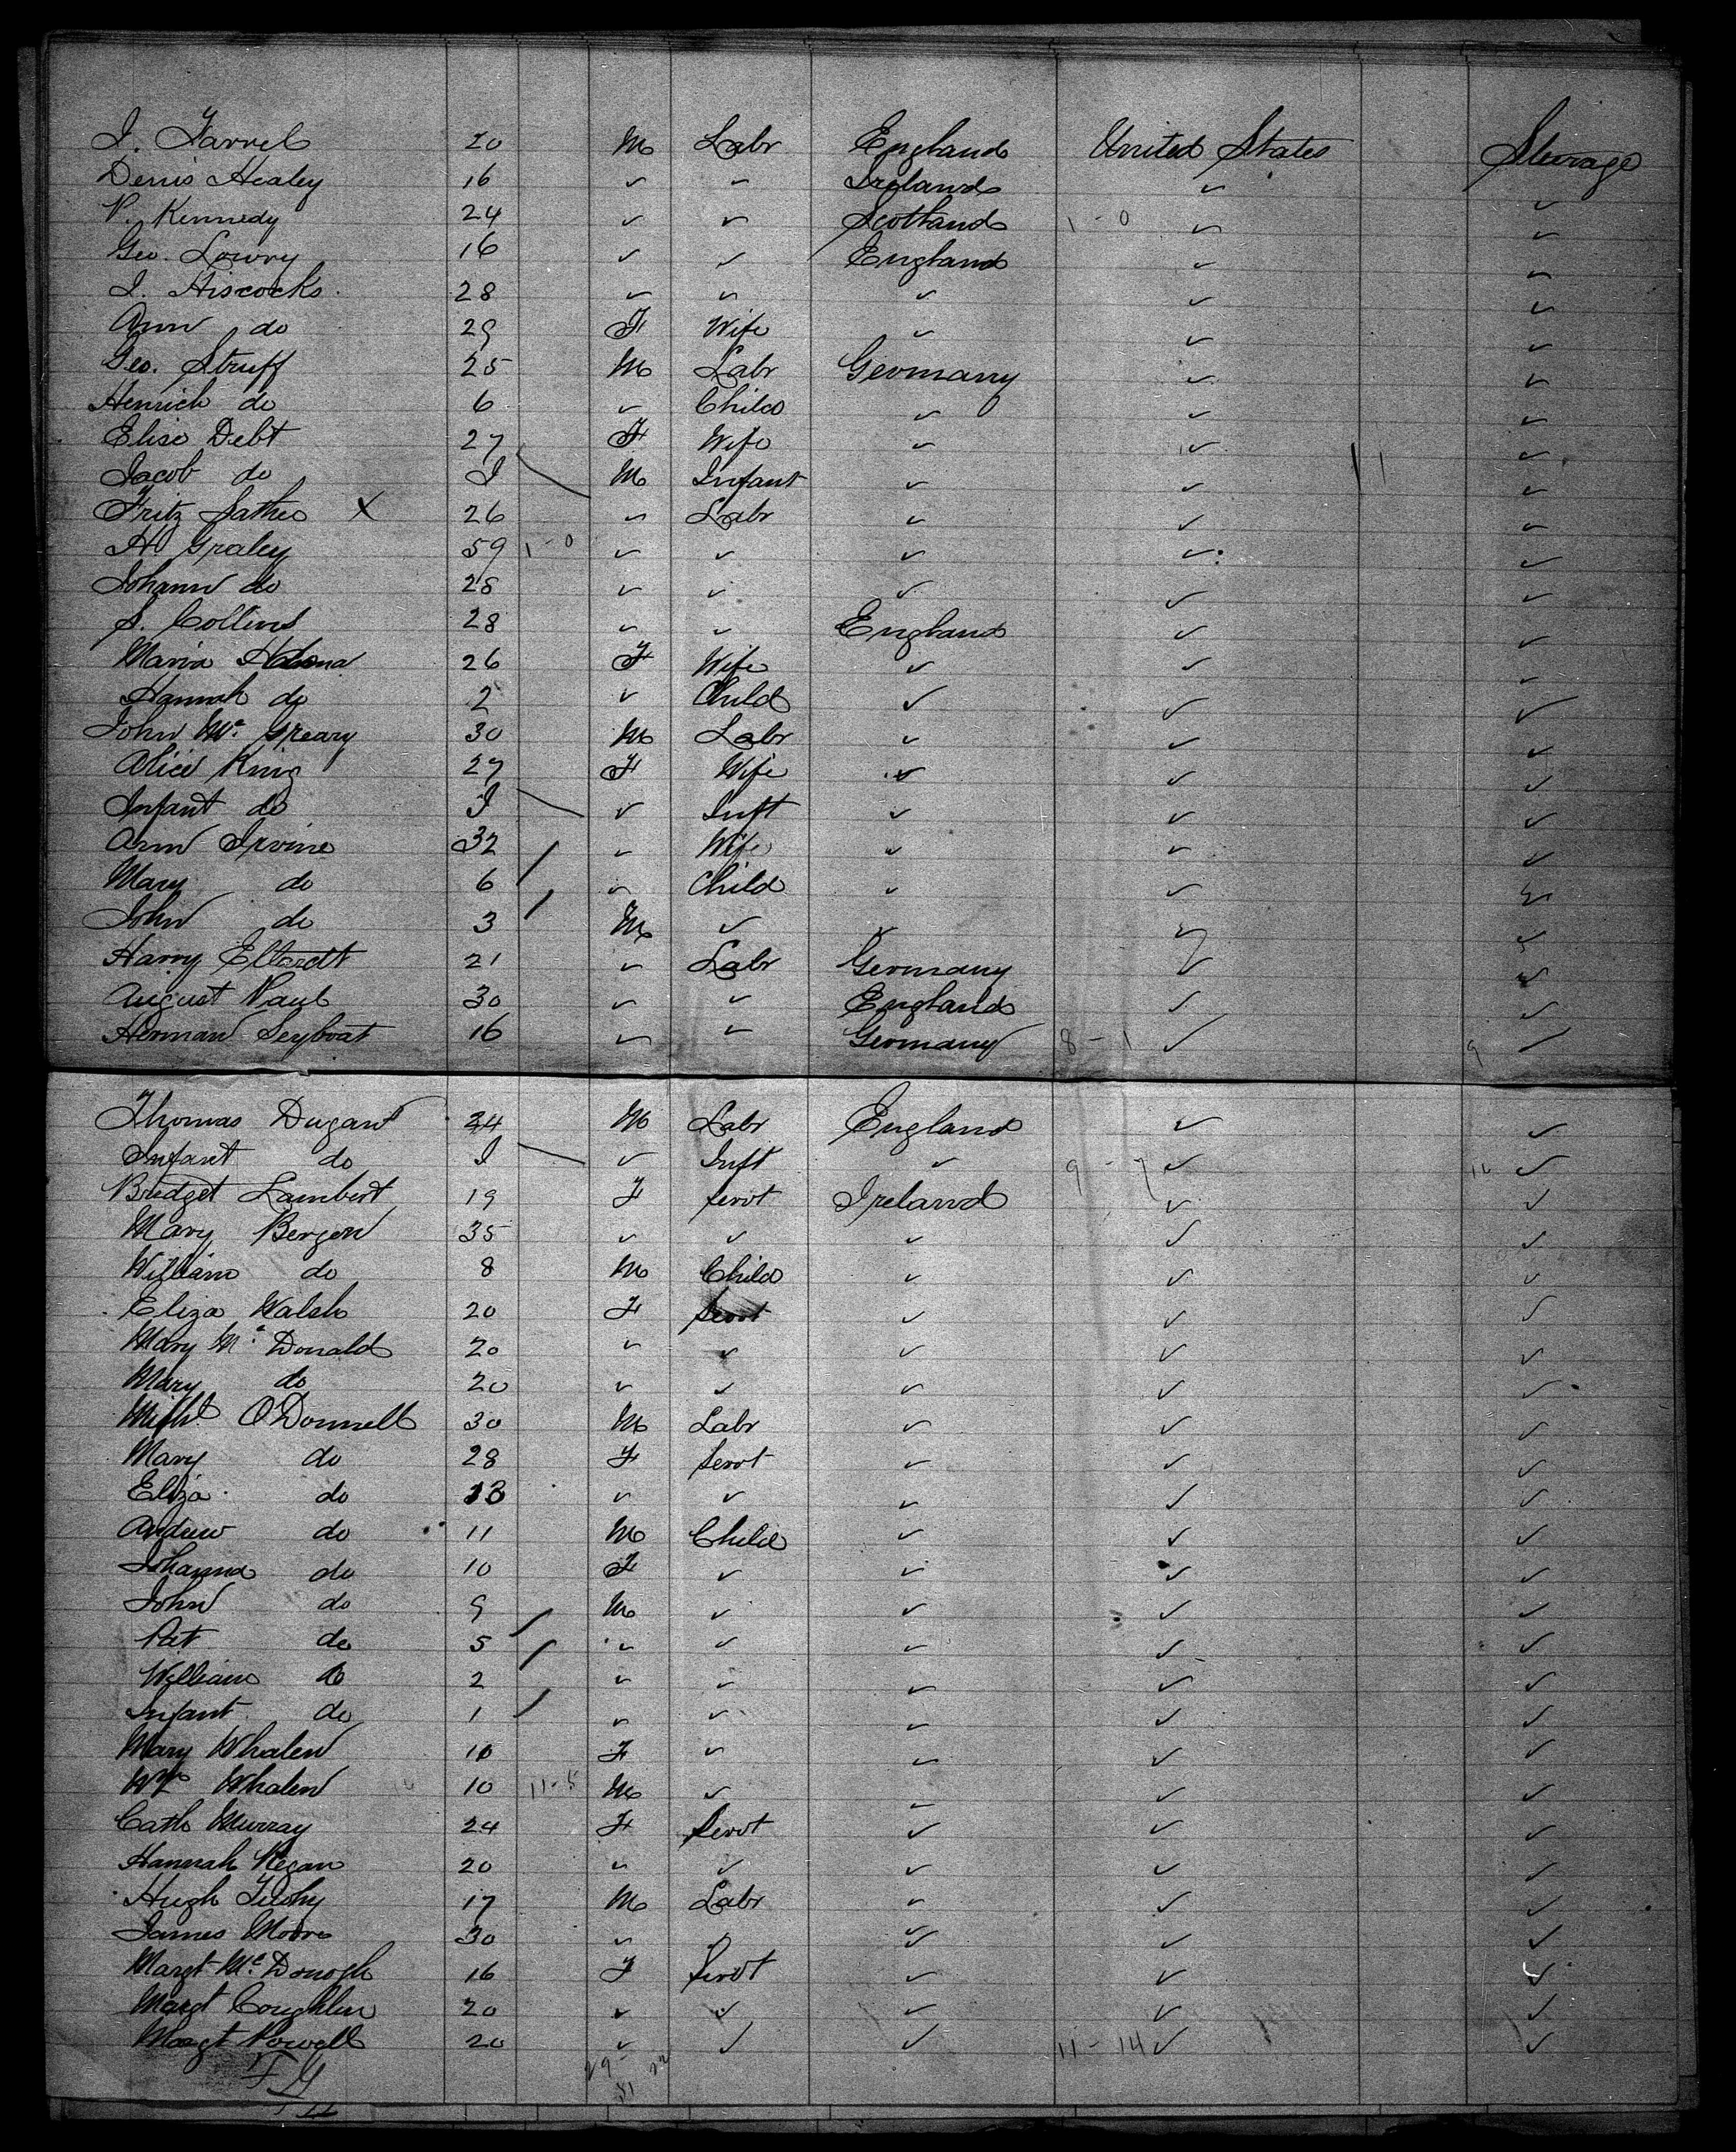 J. Farrel 20 M Labr England United States Steerage
Denis Healey 16 ✓ ✓ Ireland ✓ ✓
P. Kennedy 24 ✓ ✓ Scotland 1 - 0 ✓ ✓
Geo. Lowry 16 ✓ ✓ England ✓ ✓
J. Hiscocks 28 ✓ ✓ ✓ ✓ ✓
Ann do 29 F Wife ✓ ✓ ✓
Geo. Struff 25 M Labr Germany ✓ ✓
Henrich do 6 ✓ Child ✓ ✓ ✓
Elise Debt 27 F Wife ✓ ✓ ✓
Jacob do I M Infant ✓ ✓ ✓
Fritz X 26 ✓ Labr ✓ ✓ ✓
H Graley 59 1 - 0 ✓ ✓ ✓ ✓ ✓
Johann do 28 ✓ ✓ ✓ ✓ ✓
S. Collins 28 ✓ ✓ England ✓ ✓
Maria 26 F Wife ✓ ✓ ✓
Hannah do 2 ✓ Child ✓ ✓ ✓
John Mc Greary 30 M Labr ✓ ✓ ✓
Alice King 27 F Wife ✓ ✓ ✓
Infant do I ✓ Inft ✓ ✓ ✓
Ann Irvine 32 ✓ Wife ✓ ✓ ✓
Mary do 6 ✓ Child ✓ ✓ ✓
John do 3 M ✓ ✓ ✓ ✓
Harry 21 ✓ Labr Germany ✓ ✓
August Paul 30 ✓ ✓ England ✓ ✓
Herman Seyboat 16 ✓ ✓ Germany 8 - 1 ✓ 9 ✓
Thomas Dugan 34 M Labr England ✓ ✓
Infant do I ✓ Inft ✓ 9 - 7 ✓ ✓
Bridget Lambert 19 F Servt Ireland ✓ ✓
Mary Bergen 35 ✓ ✓ ✓ ✓ ✓
William do 8 M Child ✓ ✓ ✓
Eliza Walsh 20 F Servt ✓ ✓ ✓
Mary Mc Donald 20 ✓ ✓ ✓ ✓ ✓
Mary do 20 ✓ ✓ ✓ ✓ ✓
Michl O'Donnell 30 M Labr ✓ ✓ ✓
Mary do 28 F Servt ✓ ✓ ✓
Eliza do 13 ✓ ✓ ✓ ✓ ✓
Andrew do 11 M Child ✓ ✓ ✓
Johanna do 10 F ✓ ✓ ✓ ✓
John do 9 M ✓ ✓ ✓ ✓
Pat do 5 ✓ ✓ ✓ ✓ ✓
William do 2 ✓ ✓ ✓ ✓ ✓
Infant do 1 ✓ ✓ ✓ ✓ ✓
Mary Whalen 10 F ✓ ✓ ✓ ✓
Wm Whalen 10 11 - 5 M ✓ ✓ ✓ ✓
Cath Murray 24 F Servt ✓ ✓ ✓
Hannah Regan 20 ✓ ✓ ✓ ✓ ✓
Hugh 17 M Labr ✓ ✓ ✓
James Moore 30 ✓ ✓ ✓ ✓ ✓
Margt Mc Donogh 16 F Servt ✓ ✓ ✓
Margt Coughlin 20 ✓ ✓ ✓ ✓ ✓
Margt Powell 20 ✓ ✓ ✓ 11 - 14 ✓ ✓